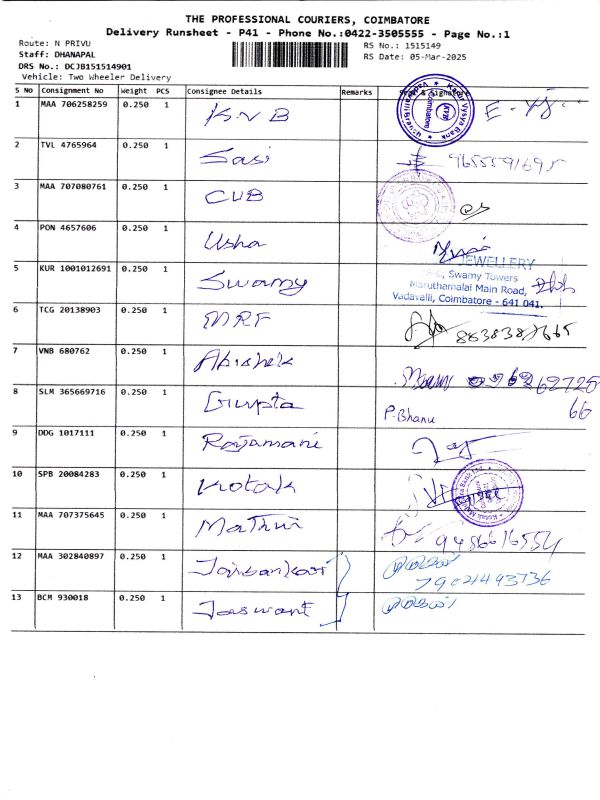 THE PROFESSIONAL COURIERS, COIMBATORE
Delivery Runsheet - P41 - Phone No.:0422-3505555 - Page No.:1
Route: N PRIVU
RS No.: 1515149
Staff: DHANAPAL
RS Date: 05-Mar-2025
DRS No.: DCJB151514901
Vehicle: Two Wheeler Delivery
S No Consignment No Weight PCS Consignee Details Remarks
1 MAA 706258259 0.250 1 K.V B
2 TVL 4765964 0.250 1 Sasi
3 MAA 707080761 0.250 1 CUB
4 PON 4657606 0.250 1 Usha
5 KUR 1001012691 0.250 1 Swamy
JEWELLERY
Swamy Towers
Maruthamalai Main Road,
Vadavalli, Coimbatore - 641 041.
6 TCG 20138903 0.250 1 MRF
7 VNB 680762 0.250 1 Abishek
8 SLM 365669716 0.250 1 Gupta P.Bhanu 66
9 DDG 1017111 0.250 1 Rajamani
10 SPB 20084283 0.250 1 Kotak
11 MAA 707375645 0.250 1 Mathur
12 MAA 302840897 0.250 1 Jaisankar
79021493736
13 BCM 930018 0.250 1 Jaswant